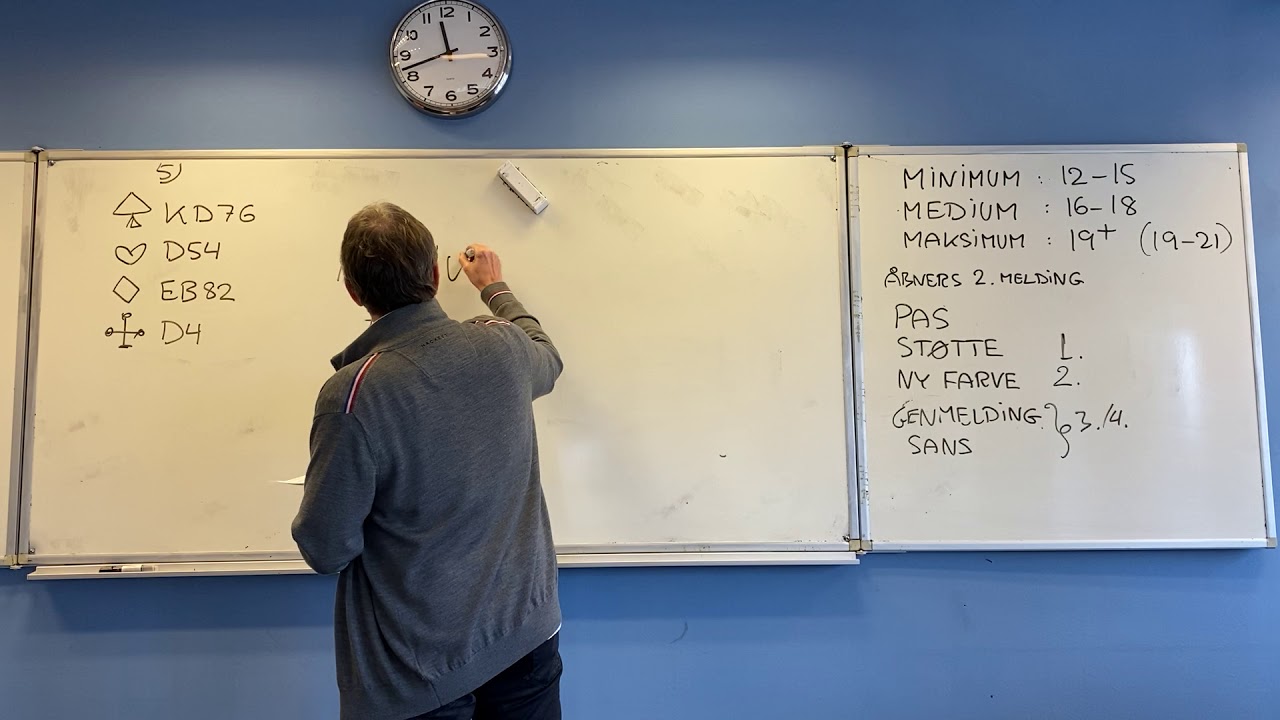 11 12 1
10 2
9 3
8 4
7 6 5
5)
KD76
D54
EB82
D4
MINIMUM : 12-15
MEDIUM : 16-18
MAKSIMUM : 19+ (19-21)
ÅBNERS 2. MELDING
PAS
STØTTE 1.
NY FARVE 2.
GENMELDING } 3./4.
SANS